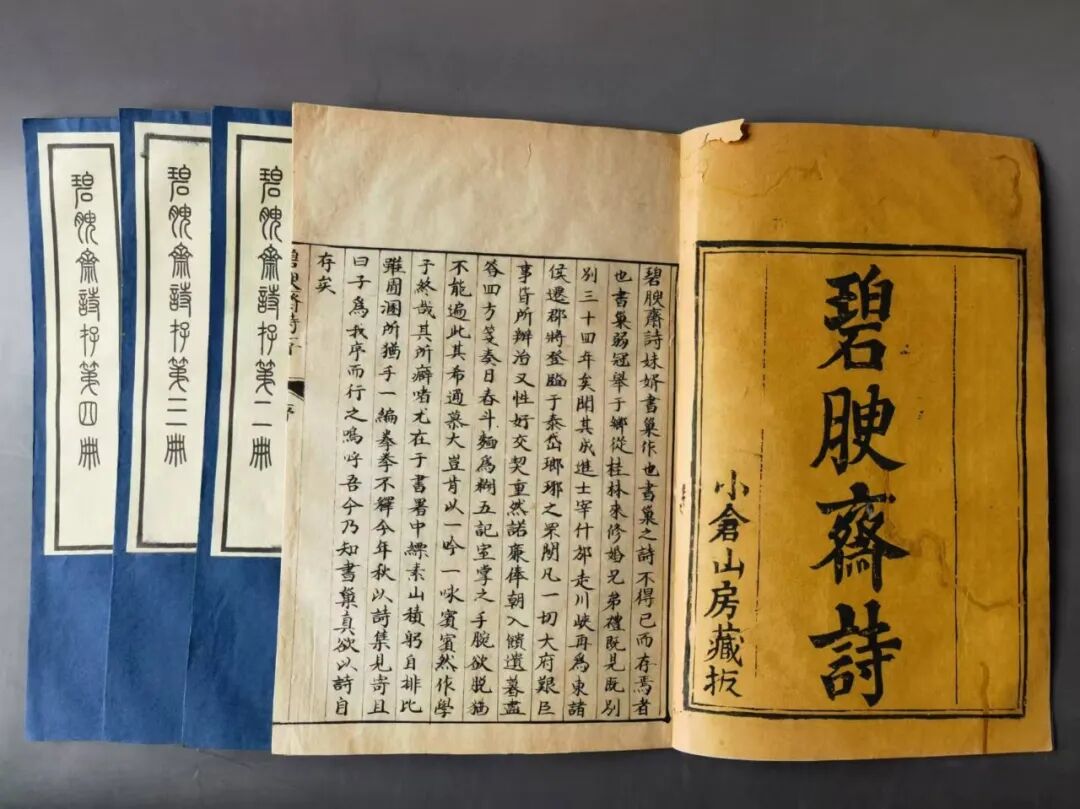 碧腴齋詩
小倉山房藏板
碧腴齋詩妹婿書巢作也書巢之詩不得已而存焉者
也書巢弱冠舉于鄉從桂林來修婚兄弟禮既見既別
別三十四年矣聞其成進士宰什邡走川峽再為東諸
侯遷郡將登臨于泰岱瑯琊之罘間凡一切大府艱巨
事皆所辦治又性好交契重然諾廉俸朝入餽遺暮盡
答四方箋奏日舂斗麵為糊五記室掌之手腕欲脫猶
不能遍此其希通慕大豈肯以一吟一咏賓賓然作學
于終哉其所癖嗜尤在于書署中縹素山積躬自排比
雖圊溷所猶手一編拳拳不釋今年秋以詩集見寄且
曰子為我序而行之嗚呼吾今乃知書巢真欲以詩自
存矣
碧腴齋詩存
序
碧腴齋詩存第二冊
碧腴齋詩存第三冊
碧腴齋詩存第四冊